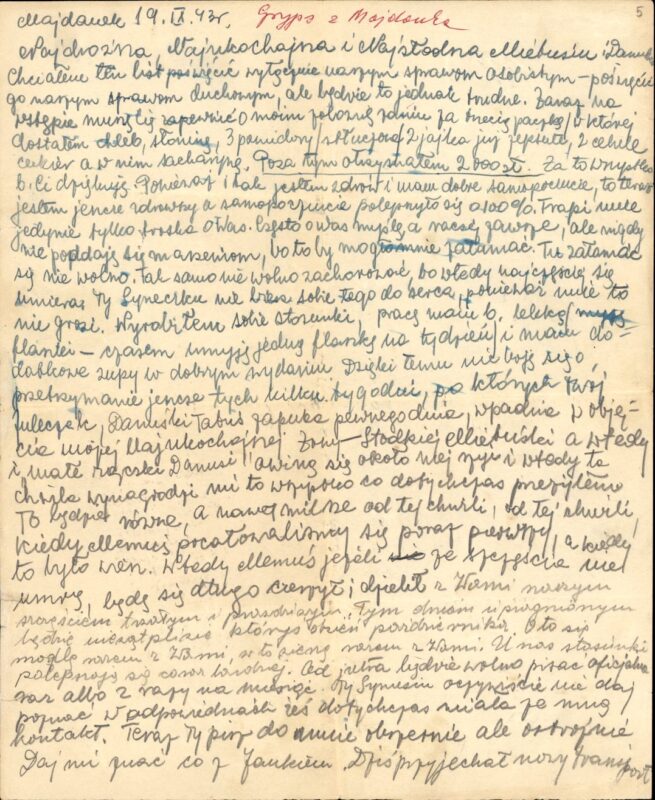 Majdanek 19.IX.43r. Gryps z Majdanka 5
Najdroższa, Najukochańsza i Najsłodsza Mieńusiu i Danusiu
Chciałem ten list poświęcić wyłącznie naszym sprawom osobistym – poświęcić
go naszym sprawom duchowym, ale będzie to jednak trudne. Zaraz na
wstępie muszę Cię zapewnić o moim zdrowiu za trzecią paczkę, w której
dostałem chleb, słoninę, 3 pomidory, 2 jajka już zepsute, 2 cebule
cukier a w nim sacharynę. Poza tym otrzymałem 2000 zł. Za to wszystko
b. Ci dziękuję. Ponieważ i tak jestem zdrów i mam dobre samopoczucie, to teraz
jestem jeszcze zdrowszy a samopoczucie polepszyło się o 100%. Trapi mnie
jedynie tylko troska o Was. Często o was myślę a raczej zawsze, ale nigdy
nie poddaję się marzeniom, bo to by mogło mnie załamać. Tu załamać
się nie wolno, tak samo nie wolno zachorować, bo wtedy najczęściej się
umiera. Ty Syneczku nie bierz sobie tego do serca, ponieważ mnie to
nie grozi. Wyrobiłem sobie stosunki, pracę mam b. lekką
flanki – czasem jedną flankę na tydzień i mam do-
datkowe zupy w dobrym wydaniu. Dzięki temu nie boję się o
przetrzymanie jeszcze tych kilku tygodni, po których Twój
Juleczek, Danuśki Tatuś zapuka pewnego dnia, wpadnie w obję-
cia mojej Najukochańszej Żony – Słodkiej Mieńuśki a wtedy
i małe rączki Danusi owiną się około mej szyi i wtedy ta
chwila wynagrodzi mi to wszystko co dotychczas przeżyłem
To będzie równe, a nawet milsze od tej chwili, od tej chwili,
kiedy pocałowaliśmy się poraz pierwszy, a kiedy
to było wen. Wtedy jeżeli ze szczęścia nie
umrę, będę się długo cieszył i dzielił z Wami naszym
szczęściem trwałym i prawdziwym. Tym dniem upragnionym
będzie niewątpliwie któryś dzień października. O to się
modlę razem z Wami, w to wierzę razem z Wami. U nas stosunki
polepszają się coraz bardziej. Od jutra będzie wolno pisać oficjalnie
raz albo 2 razy na miesiąc. Ty Synusiu oczywiście nie daj
poznać w odpowiedziach żeś dotychczas miała ze mną
kontakt. Teraz Ty pisz do mnie obszernie ale ostrożnie
Daj mi znać co z Jankiem. Dziś przyjechał nowy transport